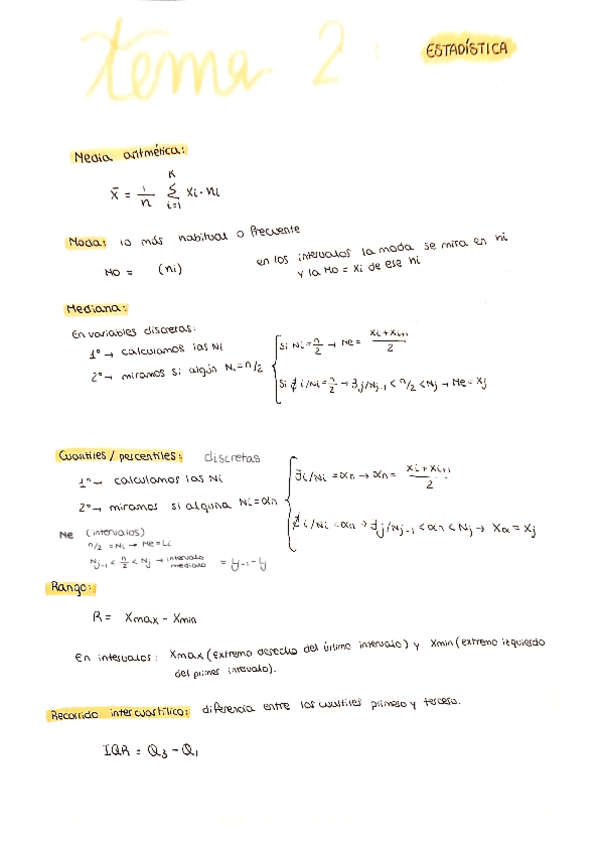 tema 2:
ESTADÍSTICA
Media aritmética:
x̄ = 1/n Σ_{i=1}^{K} xi · ni
Moda: lo más habitual o frecuente
Mo = (ni)
en los intervalos la moda se mira en ni
y la Mo = xi de ese ni
Mediana:
En variables discretas:
1º → calculamos las Ni
2º → miramos si algún Ni = n/2
Si Ni = n/2 → Me = (xi + xi+1)/2
Si ∄ i/Ni = n/2 → ∃j/Nj-1 < n/2 < Nj → Me = xj
Cuantiles / percentiles: discretas
1º → calculamos las Ni
2º → miramos si alguna Ni = αn
∃i/Ni = αn → xα = (xi + xi+1)/2
∄i/Ni = αn → ∃j/Nj-1 < αn < Nj → xα = xj
Me (intervalos)
n/2 = Ni → Me = Li
Nj-1 < n/2 < Nj → intervalo mediano = Lj-1 - Lj
Rango:
R = xmax - xmin
En intervalos: xmax (extremo derecho del último intervalo) y xmin (extremo izquierdo
del primer intervalo).
Recorrido intercuartílico: diferencia entre los cuartiles primero y tercero.
IQR = Q3 - Q1